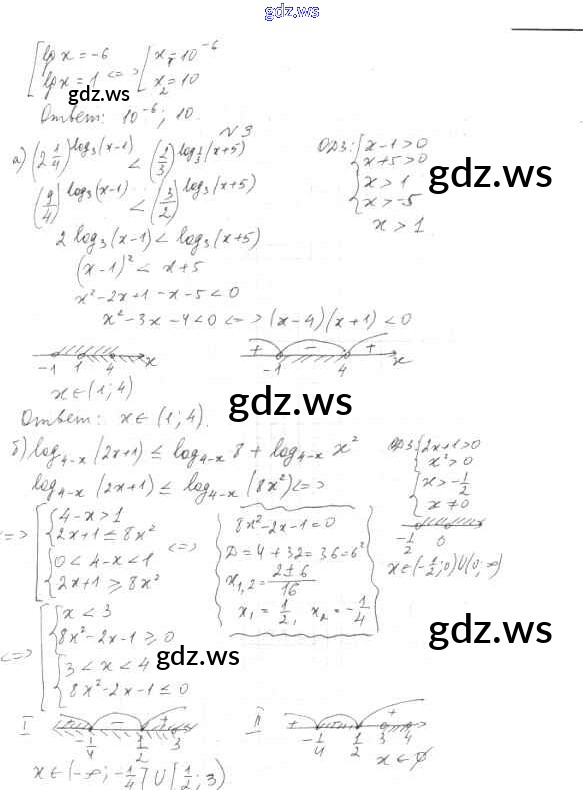 gdz.ws
[lg x = -6
lg x = 1 <=> [x₁ = 10⁻⁶
x₂ = 10
gdz.ws
Ответ: 10⁻⁶; 10.
N 3
а) (2 1/4)^(log₃(x-1)) < (2/3)^(log_(1/3)(x+5))
ОДЗ: {x-1>0
x+5>0
x>1
x>-5
x>1
gdz.ws
(9/4)^(log₃(x-1)) < (3/2)^(log₃(x+5))
2 log₃(x-1) < log₃(x+5)
(x-1)² < x+5
x²-2x+1-x-5<0
x²-3x-4<0 <=> (x-4)(x+1)<0
-1 1 4 x
+ - + -1 4 x
x∈(1;4)
gdz.ws
Ответ: x∈(1;4).
б) log₄₋ₓ(2x+1) ≤ log₄₋ₓ 8 + log₄₋ₓ x²
ОДЗ: {2x+1>0
x²>0
{x>-1/2
x≠0
-1/2 0
x∈(-1/2;0)U(0;∞)
log₄₋ₓ(2x+1) ≤ log₄₋ₓ(8x²) <=>
<=> [{4-x>1
2x+1≤8x²
{0<4-x<1
2x+1≥8x² <=>
8x²-2x-1=0
D=4+32=36=6²
x₁,₂ = (2±6)/16
x₁ = 1/2, x₂ = -1/4
<=> [{x<3
8x²-2x-1≥0
{3<x<4
8x²-2x-1≤0
gdz.ws
gdz.ws
I + - + -1/4 1/2 3
II + - + -1/4 1/2 3 4
x∈(-∞;-1/4]U[1/2;3)
x∈∅